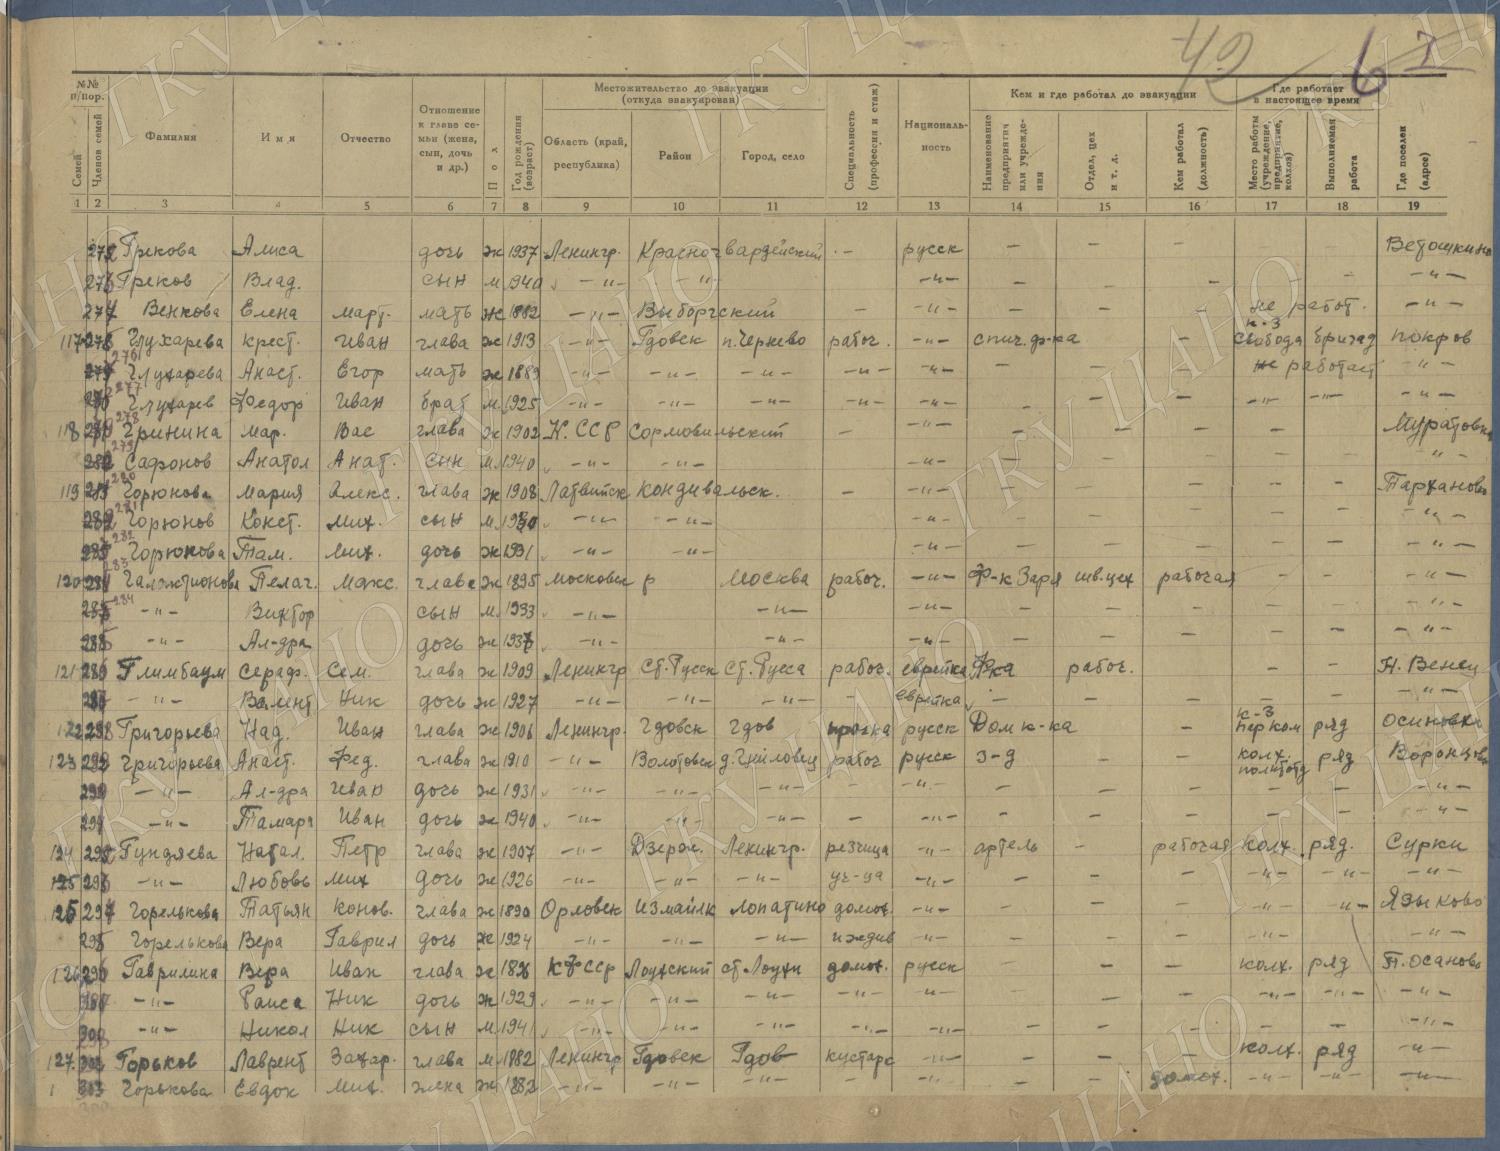 42 6 7
№№ п/пор. Местожительство до эвакуации (откуда эвакуирован) Кем и где работал до эвакуации Где работает в настоящее время
Семей Членов семей Фамилия Имя Отчество Отношение к главе семьи (жена, сын, дочь и др.) Пол Год рождения (возраст) Область (край, республика) Район Город, село Специальность (профессия и стаж) Национальность Наименование предприятия или учреждения Отдел, цех и т. д. Кем работал (должность) Место работы (учреждение, предприятие, колхоз) Выполняемая работа Где поселен (адрес)
1 2 3 4 5 6 7 8 9 10 11 12 13 14 15 16 17 18 19
Грекова Алиса дочь ж 1937 Ленингр. Красногвардейский - русск - - - Ветошкино
Греков Влад. сын м 1940 -"- -"- -"- - - - - -"-
Венкова Елена Март. мать ж 1882 -"- Выборгский - -"- - - - не работ. -"-
117 Глухарева Крест. Иван глава ж 1913 -"- Гдовск п. Чернево рабоч. -"- спич. ф-ка - к-з свобода бригад Покров
Глухарева Анаст. Егор мать ж 1883 -"- -"- -"- -"- -"- - - - не работает -"-
277 Глухарев Федор Иван брат м 1925 -"- -"- -"- -"- -"- - - - -"- -"- -"-
118 278 Гринина Мар. Вас глава ж 1902 К. ССР Сормовильский - -"- - - - - - Муратовка
279 Сафонов Анатол Анат. сын м. 1940 -"- -"- -"- - - - - - -"-
119 280 Горюнова Мария Алекс. глава ж 1908 Латвийск Кондивальск. - -"- - - - - - Тархановка
281 Горюнов Конст. Мих. сын м. 1930 -"- -"- -"- - - - - - -"-
282 Горюнова Там. Мих. дочь ж 1931 -"- -"- -"- - - - - - -"-
120 283 Галактионова Пелаг. Макс. глава ж 1895 Московск р Москва рабоч. -"- Ф-к Заря шв. цех рабочая - - -"-
284 -"- Виктор сын м. 1933 -"- -"- -"- - - - - - -"-
-"- Ал-дра дочь ж 1937 -"- -"- -"- - - - - - -"-
121 Глимбаум Сераф. Сем. глава ж 1909 Ленингр Ст. Русск Ст. Русса рабоч. еврейка Ф-ка рабоч. - - Н. Венец
-"- Валент Ник дочь ж 1927 -"- -"- -"- - еврейка - - - - - -"-
122 Григорьева Над. Иван глава ж 1906 Ленингр. Гдовск Гдов прачка русск Дом к-ка - к-з Перком ряд Осиновка
123 Григорьева Анаст. Фед. глава ж 1910 -"- Волотовск рабоч русск з-д - - колх. политотд ряд
-"- Ал-дра Иван дочь ж 1931 -"- -"- -"- - -"- - - - - - -"-
-"- Тамара Иван дочь ж 1940 -"- -"- -"- - -"- - - - - - -"-
124 Гундяева Натал. Петр глава ж 1907 -"- Дзерж. Ленингр. резчица -"- артель - рабочая колх. ряд. Сурки
125 -"- Любовь Мих дочь ж 1926 -"- -"- -"- уч-ца -"- - - - -"- -"- -"-
125 Горелькова Татьян Конов. глава ж 1890 Орловск Измайлк Лопатино домох. -"- - - - -"- -"- Языково
Горелькова Вера Гаврил дочь ж 1924 -"- -"- -"- иждив -"- - - - -"- - -"-
126 Гаврилина Вера Иван глава ж К Ф ССР Лоухский ст. Лоухи домох. русск - - - колх. ряд П. Осаново
-"- Раиса Ник дочь ж 1929 -"- -"- -"- -"- -"- - - - -"- -"- -"-
-"- Никол Ник сын м 1941 -"- -"- -"- -"- -"- - - - - - -"-
127 Горьков Лаврент Захар. глава м. 1882 Ленингр Гдовск Гдов кустарь -"- - - - колх. ряд -"-
303 Горькова Евдок Мих. жена ж 1882 -"- -"- -"- -"- -"- - - домох. -"- -"- -"-
ГКУ ЦАНО